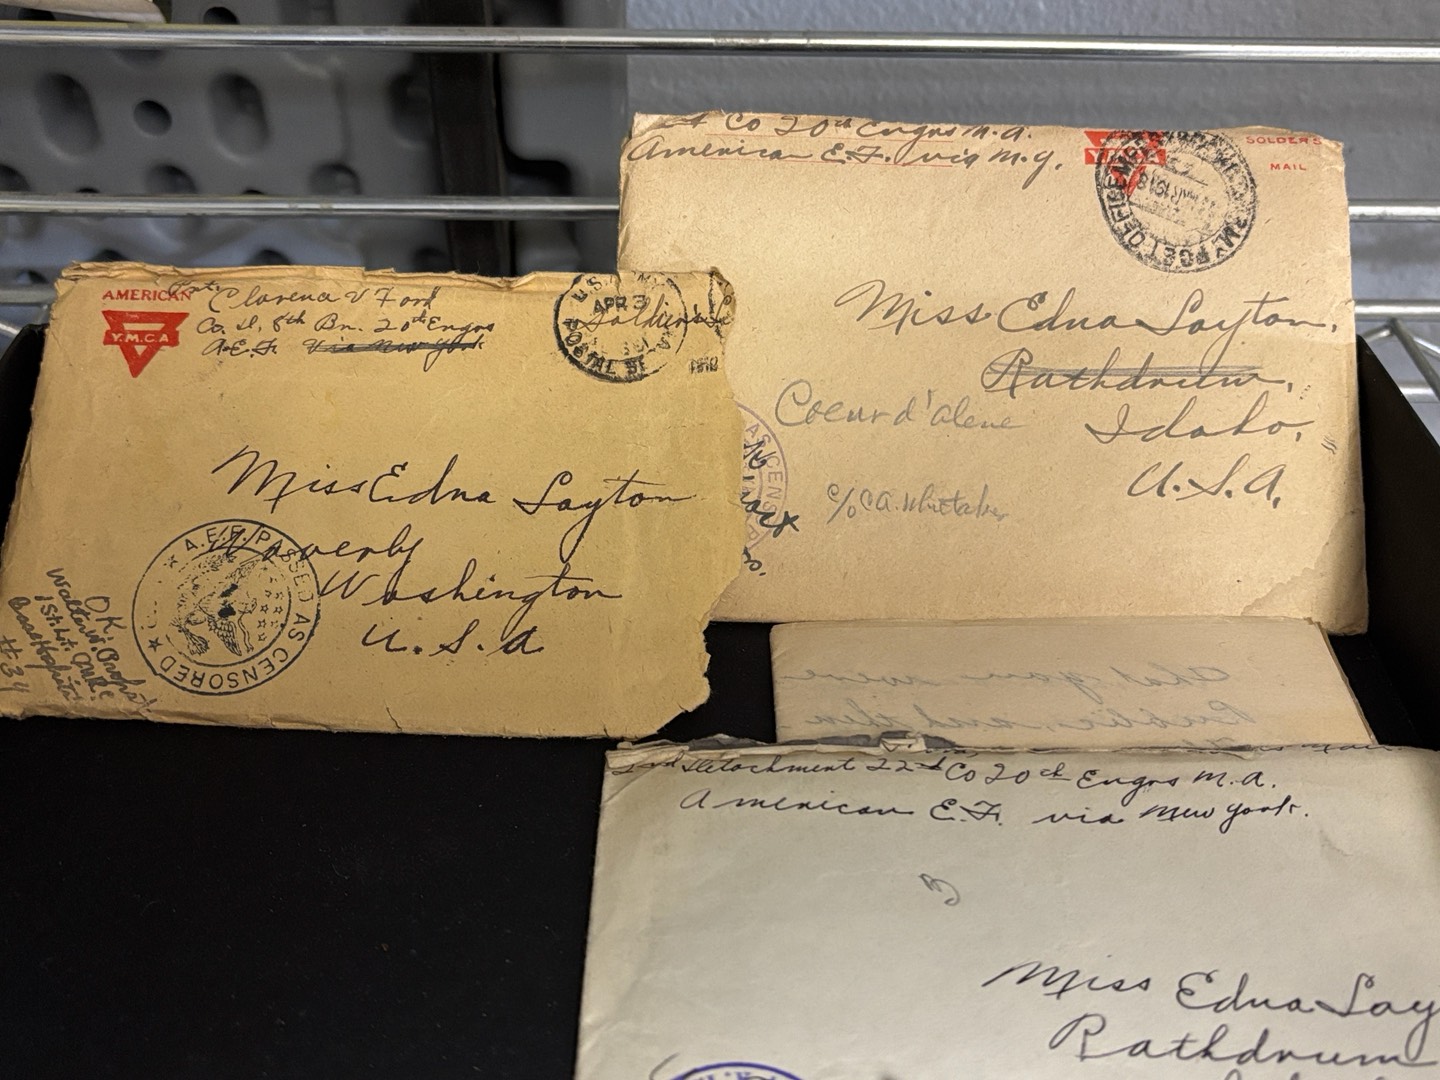 AMERICAN
Y.M.C.A
Pvt. Clarence V Ford
Co. D, 8th Bn. 20th Engrs
A.E.F. Via New York
U.S.
APR 3
POSTAL
Soldier's
Miss Edna Layton
Waverly
Washington
U.S.A
A.E.F. PASSED AS CENSORED
OK.
1st Lt.
Base Hospital
#34
Co 20th Engrs N.A.
American E.F. via N.Y.
SOLDER'S
MAIL
Miss Edna Layton,
Rathdrum,
Coeur d'alene
Idaho,
c/o C A. Whitaker
U.S.A,
AS CENS
that you were
Public, and then
2nd Detachment 22nd Co 20th Engrs N.A.
American E.F. via New York.
Miss Edna Lay
Rathdrum